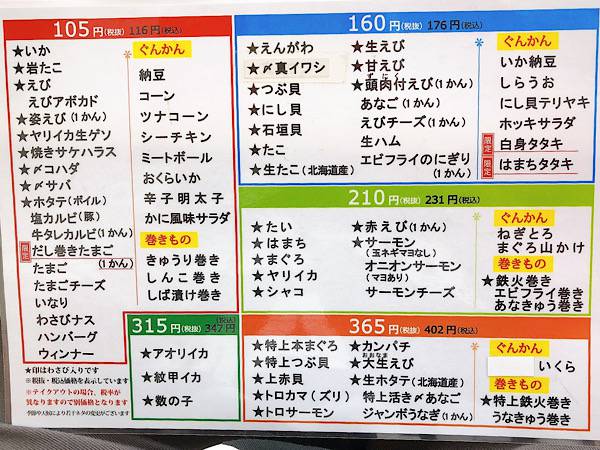 105円(税抜) 116円(税込)
★いか
★岩たこ
★えび
えびアボカド
★姿えび(1かん)
★ヤリイカ生ゲソ
★焼きサケハラス
★〆コハダ
★〆サバ
★ホタテ(ボイル)
塩カルビ(豚)
牛タレカルビ(1かん)
限定 だし巻きたまご
(1かん)
たまご
たまごチーズ
いなり
わさびナス
ハンバーグ
ウィンナー
ぐんかん
納豆
コーン
ツナコーン
シーチキン
ミートボール
おくらいか
辛子明太子
かに風味サラダ
巻きもの
きゅうり巻き
しんこ巻き
しば漬け巻き
★印はわさび入りです
※税抜・税込価格を表示しています
※テイクアウトの場合、税率が
異なりますので別価格となります
315円(税抜) 347円(税込)
★アオリイカ
★紋甲イカ
★数の子
160円(税抜) 176円(税込)
★えんがわ
★〆真イワシ
★つぶ貝
★にし貝
★石垣貝
★たこ
★生たこ(北海道産)
★生えび
★甘えび
ずにく
★頭肉付えび(1かん)
あなご(1かん)
えびチーズ(1かん)
生ハム
エビフライのにぎり
(1かん)
ぐんかん
いか納豆
しらうお
にし貝テリヤキ
ホッキサラダ
限定 白身タタキ
限定 はまちタタキ
210円(税抜) 231円(税込)
★たい
★はまち
★まぐろ
★ヤリイカ
★シャコ
★赤えび(1かん)
★サーモン
(玉ネギマヨなし)
オニオンサーモン
(マヨあり)
サーモンチーズ
ぐんかん
ねぎとろ
まぐろ山かけ
巻きもの
★鉄火巻き
エビフライ巻き
あなきゅう巻き
365円(税抜) 402円(税込)
★特上本まぐろ
★特上つぶ貝
★上赤貝
★トロカマ(ズリ)
★トロサーモン
★カンパチ
おおなま
★大生えび
★生ホタテ(北海道産)
特上活き〆あなご
ジャンボうなぎ(1かん)
ぐんかん
いくら
巻きもの
★特上鉄火巻き
うなきゅう巻き